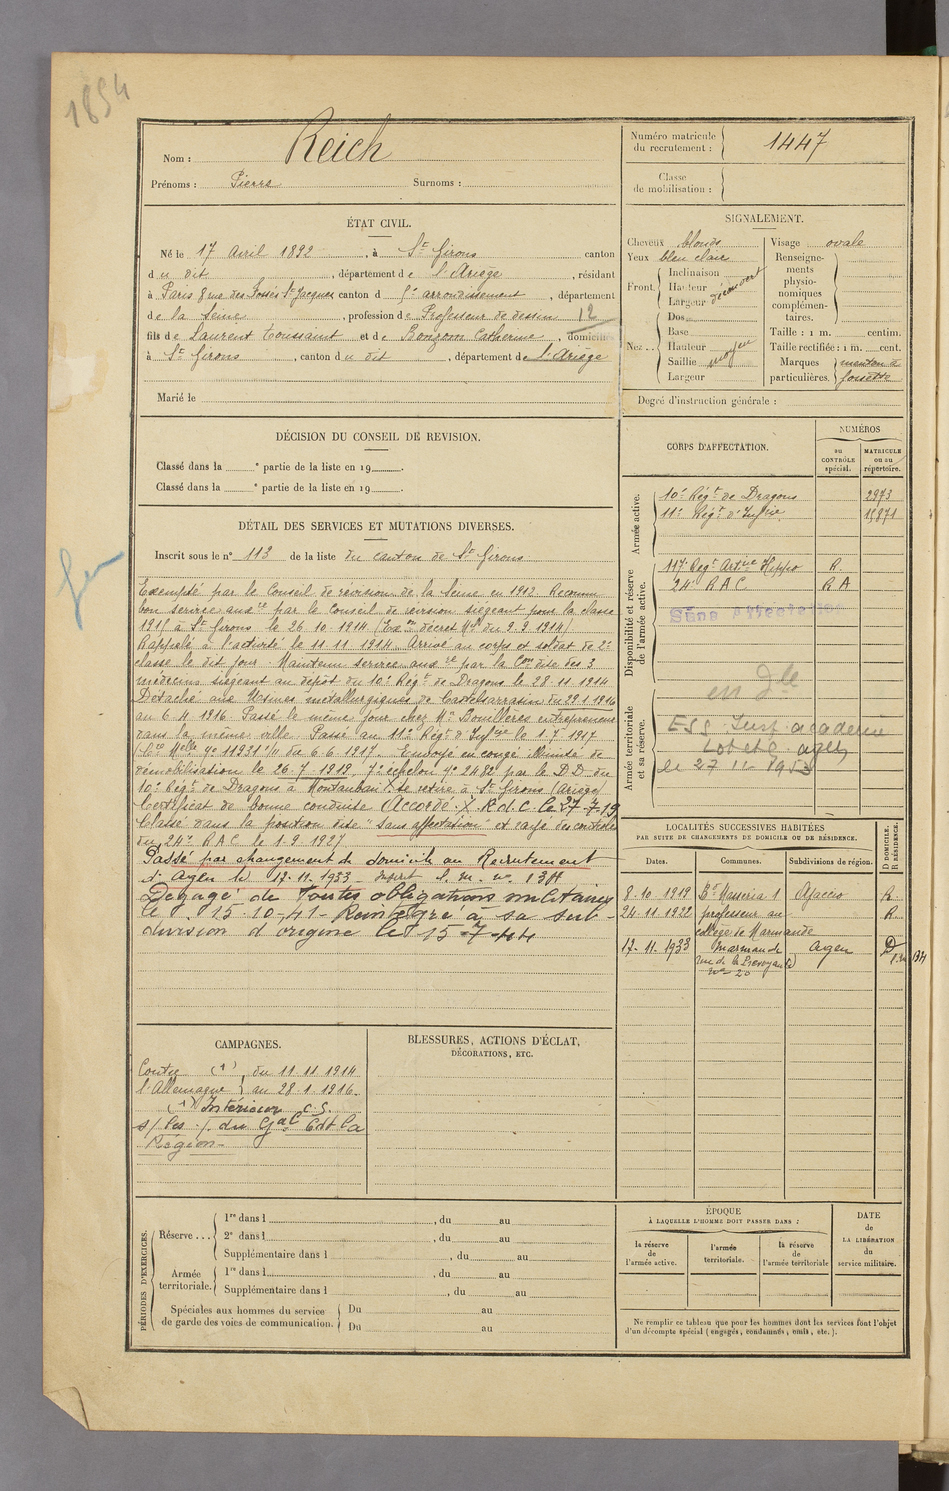 1894
Nom : Reich
Prénoms : Pierre Surnoms :
ÉTAT CIVIL.
Né le 17 Avril 1892, à St Girons canton
du dit, département de l'Ariège, résidant
à Paris 8 rue des Fossés St Jacques canton d 5e arrondissement, département
de la Seine, profession de Professeur de dessin 12
fils de Laurent Toussaint et de Bonzom Catherine, domiciliés
à St Girons, canton du dit, département de l'Ariège
Marié le
DÉCISION DU CONSEIL DE REVISION.
Classé dans la e partie de la liste en 19 .
Classé dans la e partie de la liste en 19 .
DÉTAIL DES SERVICES ET MUTATIONS DIVERSES.
Inscrit sous le no 113 de la liste du canton de St Girons
Exempté par le Conseil de révision de la Seine en 1912. Reconnu
bon service auxre par le Conseil de révision siégeant pour la classe
1915 à St Girons le 26.10.1914 (Exen décret du 9.9.1914)
Rappelé à l'activité le 11.11.1914. Arrivé au corps et soldat de 2e
classe le dit jour. Maintenu service auxre par la Con dite des 3
médecins siégeant au dépôt du 10e Régt de Dragons le 28.11.1914
Détaché aux Usines métallurgiques de Castelsarrasin du 29.1.1916
au 6.4.1916. Passé le même jour chez Mr Bouillères entrepreneur
dans la même ville. Passé au 11e Régt d'Infrie le 1.7.1917
(Cre Melle No 11931 du 6.6.1917. Envoyé en congé illimité de
démobilisation le 26.7.1919, 7e échelon No 2482 par le D.D. du
10e Régt de Dragons à Montauban. Se retire à St Girons (Ariège)
Certificat de bonne conduite Accordé. X R.d.C. le 27-7-19
Classé dans la position dite "Sans affectation" et rayé des contrôles
du 24e R A C le 1.9.1927
Passé par changement de domicile au Recrutement
d'Agen le 17.11.1933 - Inscrit
Dégagé de Toutes obligations militaires
le 15-10-41 - Réintégré à sa sub-
division d'origine le 15-7-44
CAMPAGNES.
Contre (1) du 11.11.1914
l'Allemagne au 28.1.1916.
(1) Intérieur C.S.
Région
BLESSURES, ACTIONS D'ÉCLAT,
DÉCORATIONS, ETC.
PÉRIODES D'EXERCICES.
Réserve ... 1re dans l , du au
2e dans l , du au
Supplémentaire dans l , du au
Armée territoriale. 1re dans l , du au
Supplémentaire dans l , du au
Spéciales aux hommes du service Du au
de garde des voies de communication. Du au
Numéro matricule
du recrutement : 1447
Classe
de mobilisation :
SIGNALEMENT.
Cheveux blonds
Yeux bleu clair
Front. Inclinaison
Hauteur
Largeur découvert
Nez .. Dos
Base
Hauteur
Saillie moyen
Largeur
Visage ovale
Renseigne-
ments
physio-
nomiques
complémen-
taires.
Taille : 1 m. centim.
Taille rectifiée : 1 m. cent.
Marques menton à
particulières. fossette
Degré d'instruction générale :
CORPS D'AFFECTATION.
NUMÉROS
au
CONTRÔLE
spécial.
MATRICULE
ou au
répertoire.
Armée active.
10e Régt de Dragons 2973
11e Régt d'Infrie 15871
Disponibilité et réserve
de l'armée active.
117 Régt Artrie Hippo R.
24e R A C R A
Sans affectation
Armée territoriale
et sa réserve.
en dle
ESS Insp académie
Lot et G. agen
le 27 11 1953
LOCALITÉS SUCCESSIVES HABITÉES
PAR SUITE DE CHANGEMENTS DE DOMICILE OU DE RÉSIDENCE.
Dates. Communes. Subdivisions de région. D DOMICILE. R RÉSIDENCE.
8.10.1919 Bd Masseria 1 Ajaccio R.
24.11.1922 professeur au R.
collège de Marmande
17.11.1933 Marmande Agen D
rue de la Prévoyance
no 20
ÉPOQUE
À LAQUELLE L'HOMME DOIT PASSER DANS :
la réserve
de
l'armée active.
l'armée
territoriale.
la réserve
de
l'armée territoriale
DATE
de
LA LIBÉRATION
du
service militaire.
Ne remplir ce tableau que pour les hommes dont les services font l'objet
d'un décompte spécial (engagés, condamnés, omis, etc.).